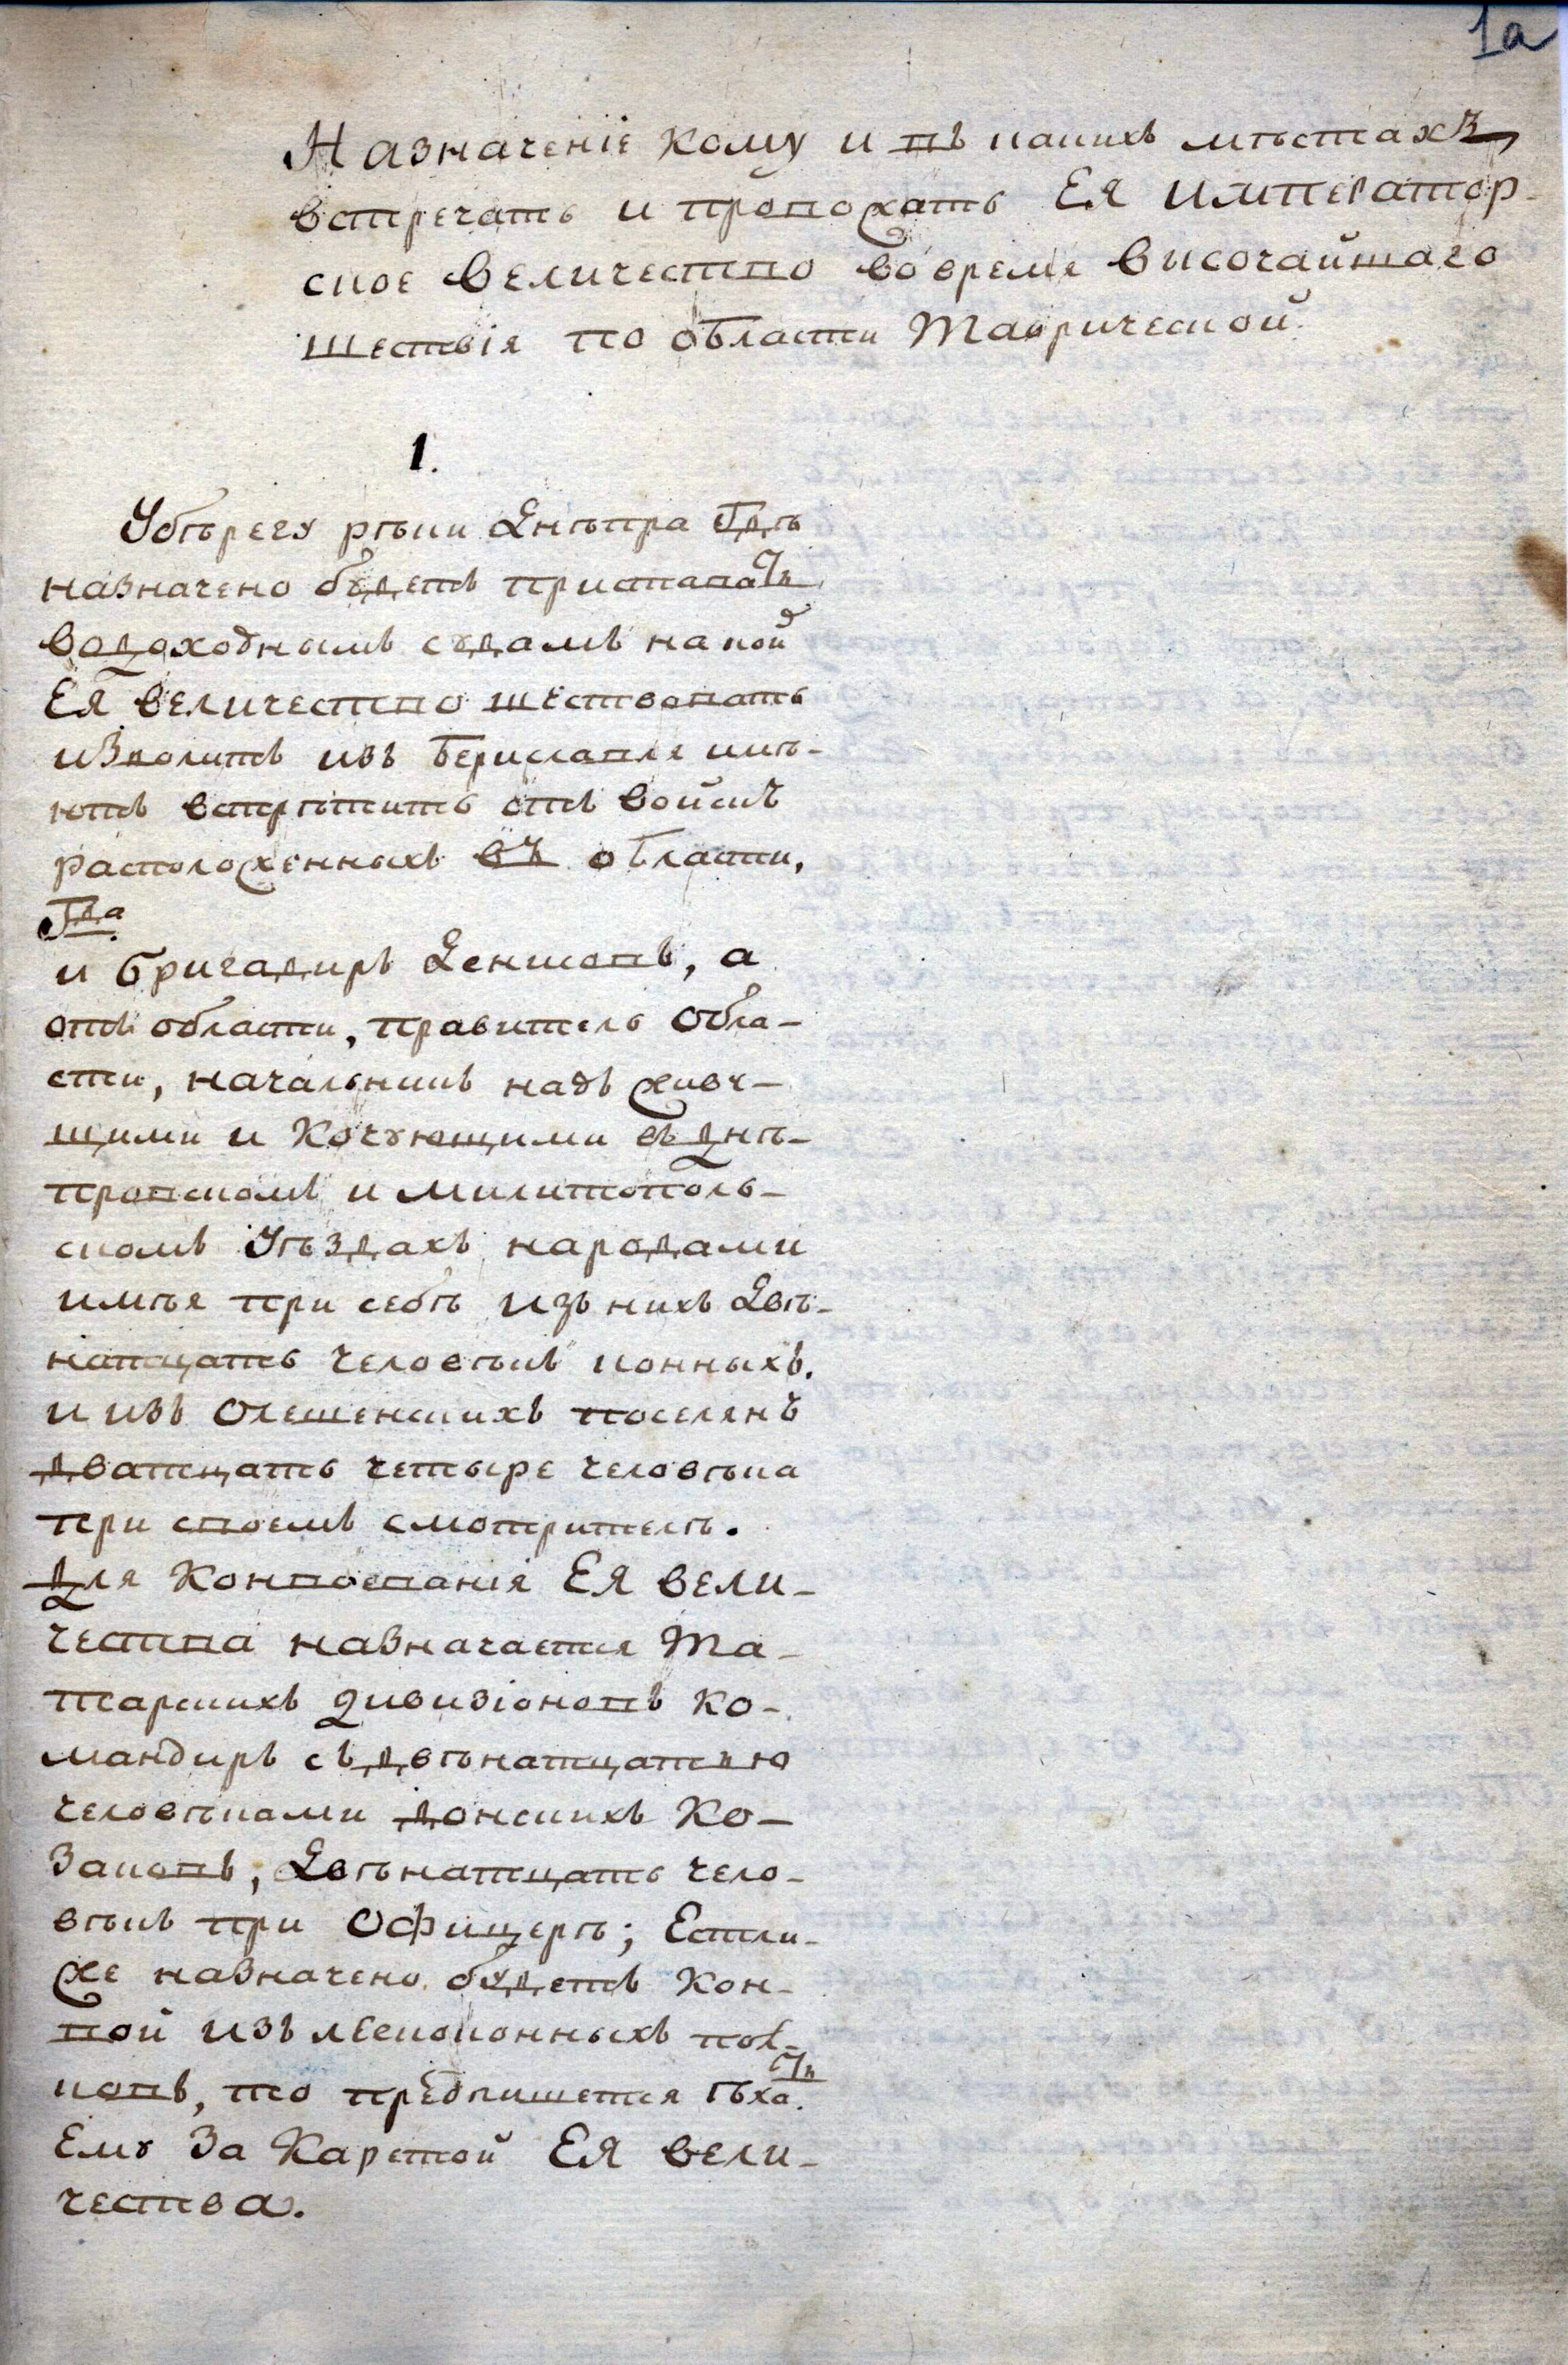 1а
Назначенiе кому и въ какихъ мѣстахъ
встречать и провожать Ея император-
ское величество во время височайшаго
шествiя по области Таврической.
1.
У бѣрегу рѣки Днѣпра гдѣ
назначено будетъ приставать
водоходнымъ судамъ на кой
Ея величество шествовать
изволитъ изъ Бериславля имѣ-
ютъ встрѣтить отъ войскъ
расположенныхъ въ области,
Гда
и бригадиръ Деишовъ, а
отъ области, правитель обла-
сти, начальникъ надъ живу-
щими и кочующими въ днѣ-
провскомъ и милитополь-
скомъ уѣздахъ народами
имѣя при себѣ изъ нихъ двѣ-
натцать человѣкъ конныхъ.
и изъ олешенскихъ поселянъ
дватцать четыре человѣка
при своемъ смотрителѣ.
для конвоеванiя Ея вели-
чества назначается та-
тарскихъ дивизiоновъ ко-
мандиръ съ двѣнатцатью
человѣками донскихъ ко-
заковъ, двѣнатцать чело-
вѣкъ при офицерѣ; Естли-
же назначено будетъ кон-
вой изъ легкоконныхъ пол-
ковъ, то предпишется ѣхать
Ему за каретой Ея вели-
чества.